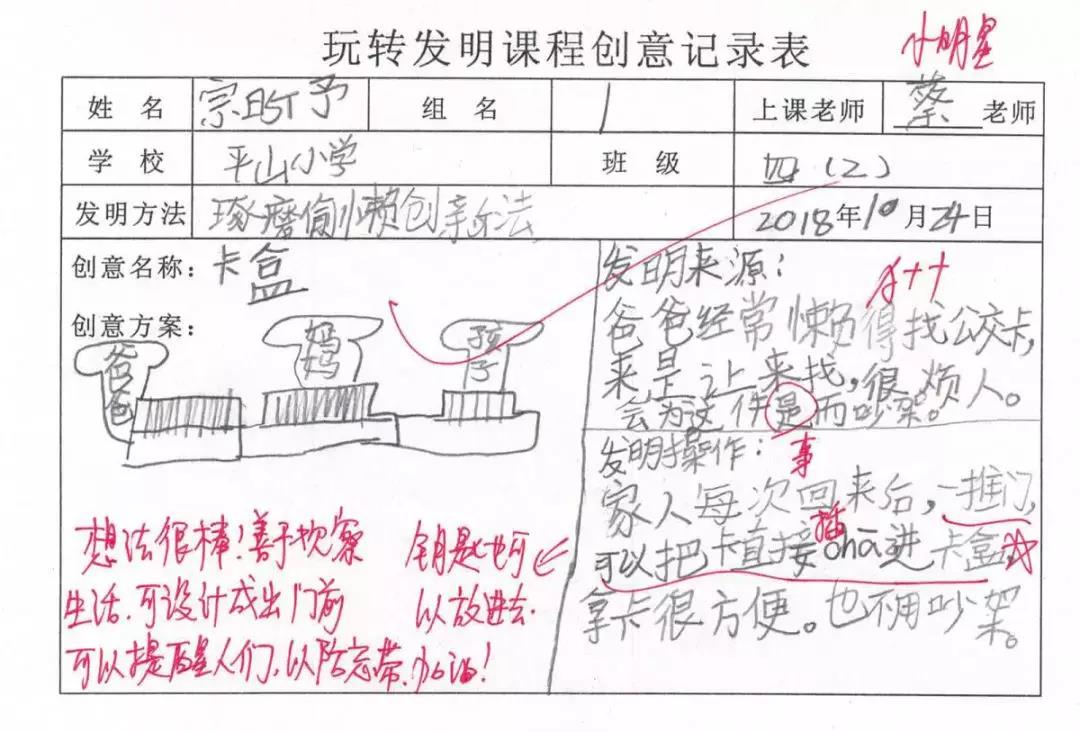 玩转发明课程创意记录表
小明星
姓名 宗昀予 组名 1 上课老师 蔡老师
学校 平山小学 班级 四(2)
发明方法 琢磨偷懒创新法 2018年10月24日
创意名称:卡盒
创意方案:
爸爸 妈妈 孩子
发明来源:
A++
爸爸经常懒得找公交卡,
来是让来找,很烦人。
会为这件是而吵架。
事
发明操作:
家人每次回来后,一推门,
插
可以把卡直接cha进卡盒
拿卡很方便。也不用吵架。
想法很棒!善于观察
生活.可设计成出门前
可以提醒人们,以防忘带.加油!
钥匙也可
以放进去.